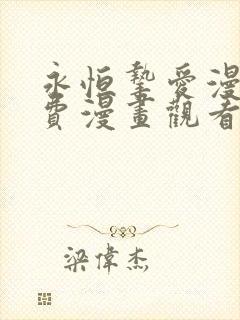 永恒摯愛漫
費漫畫觀看
梁偉杰